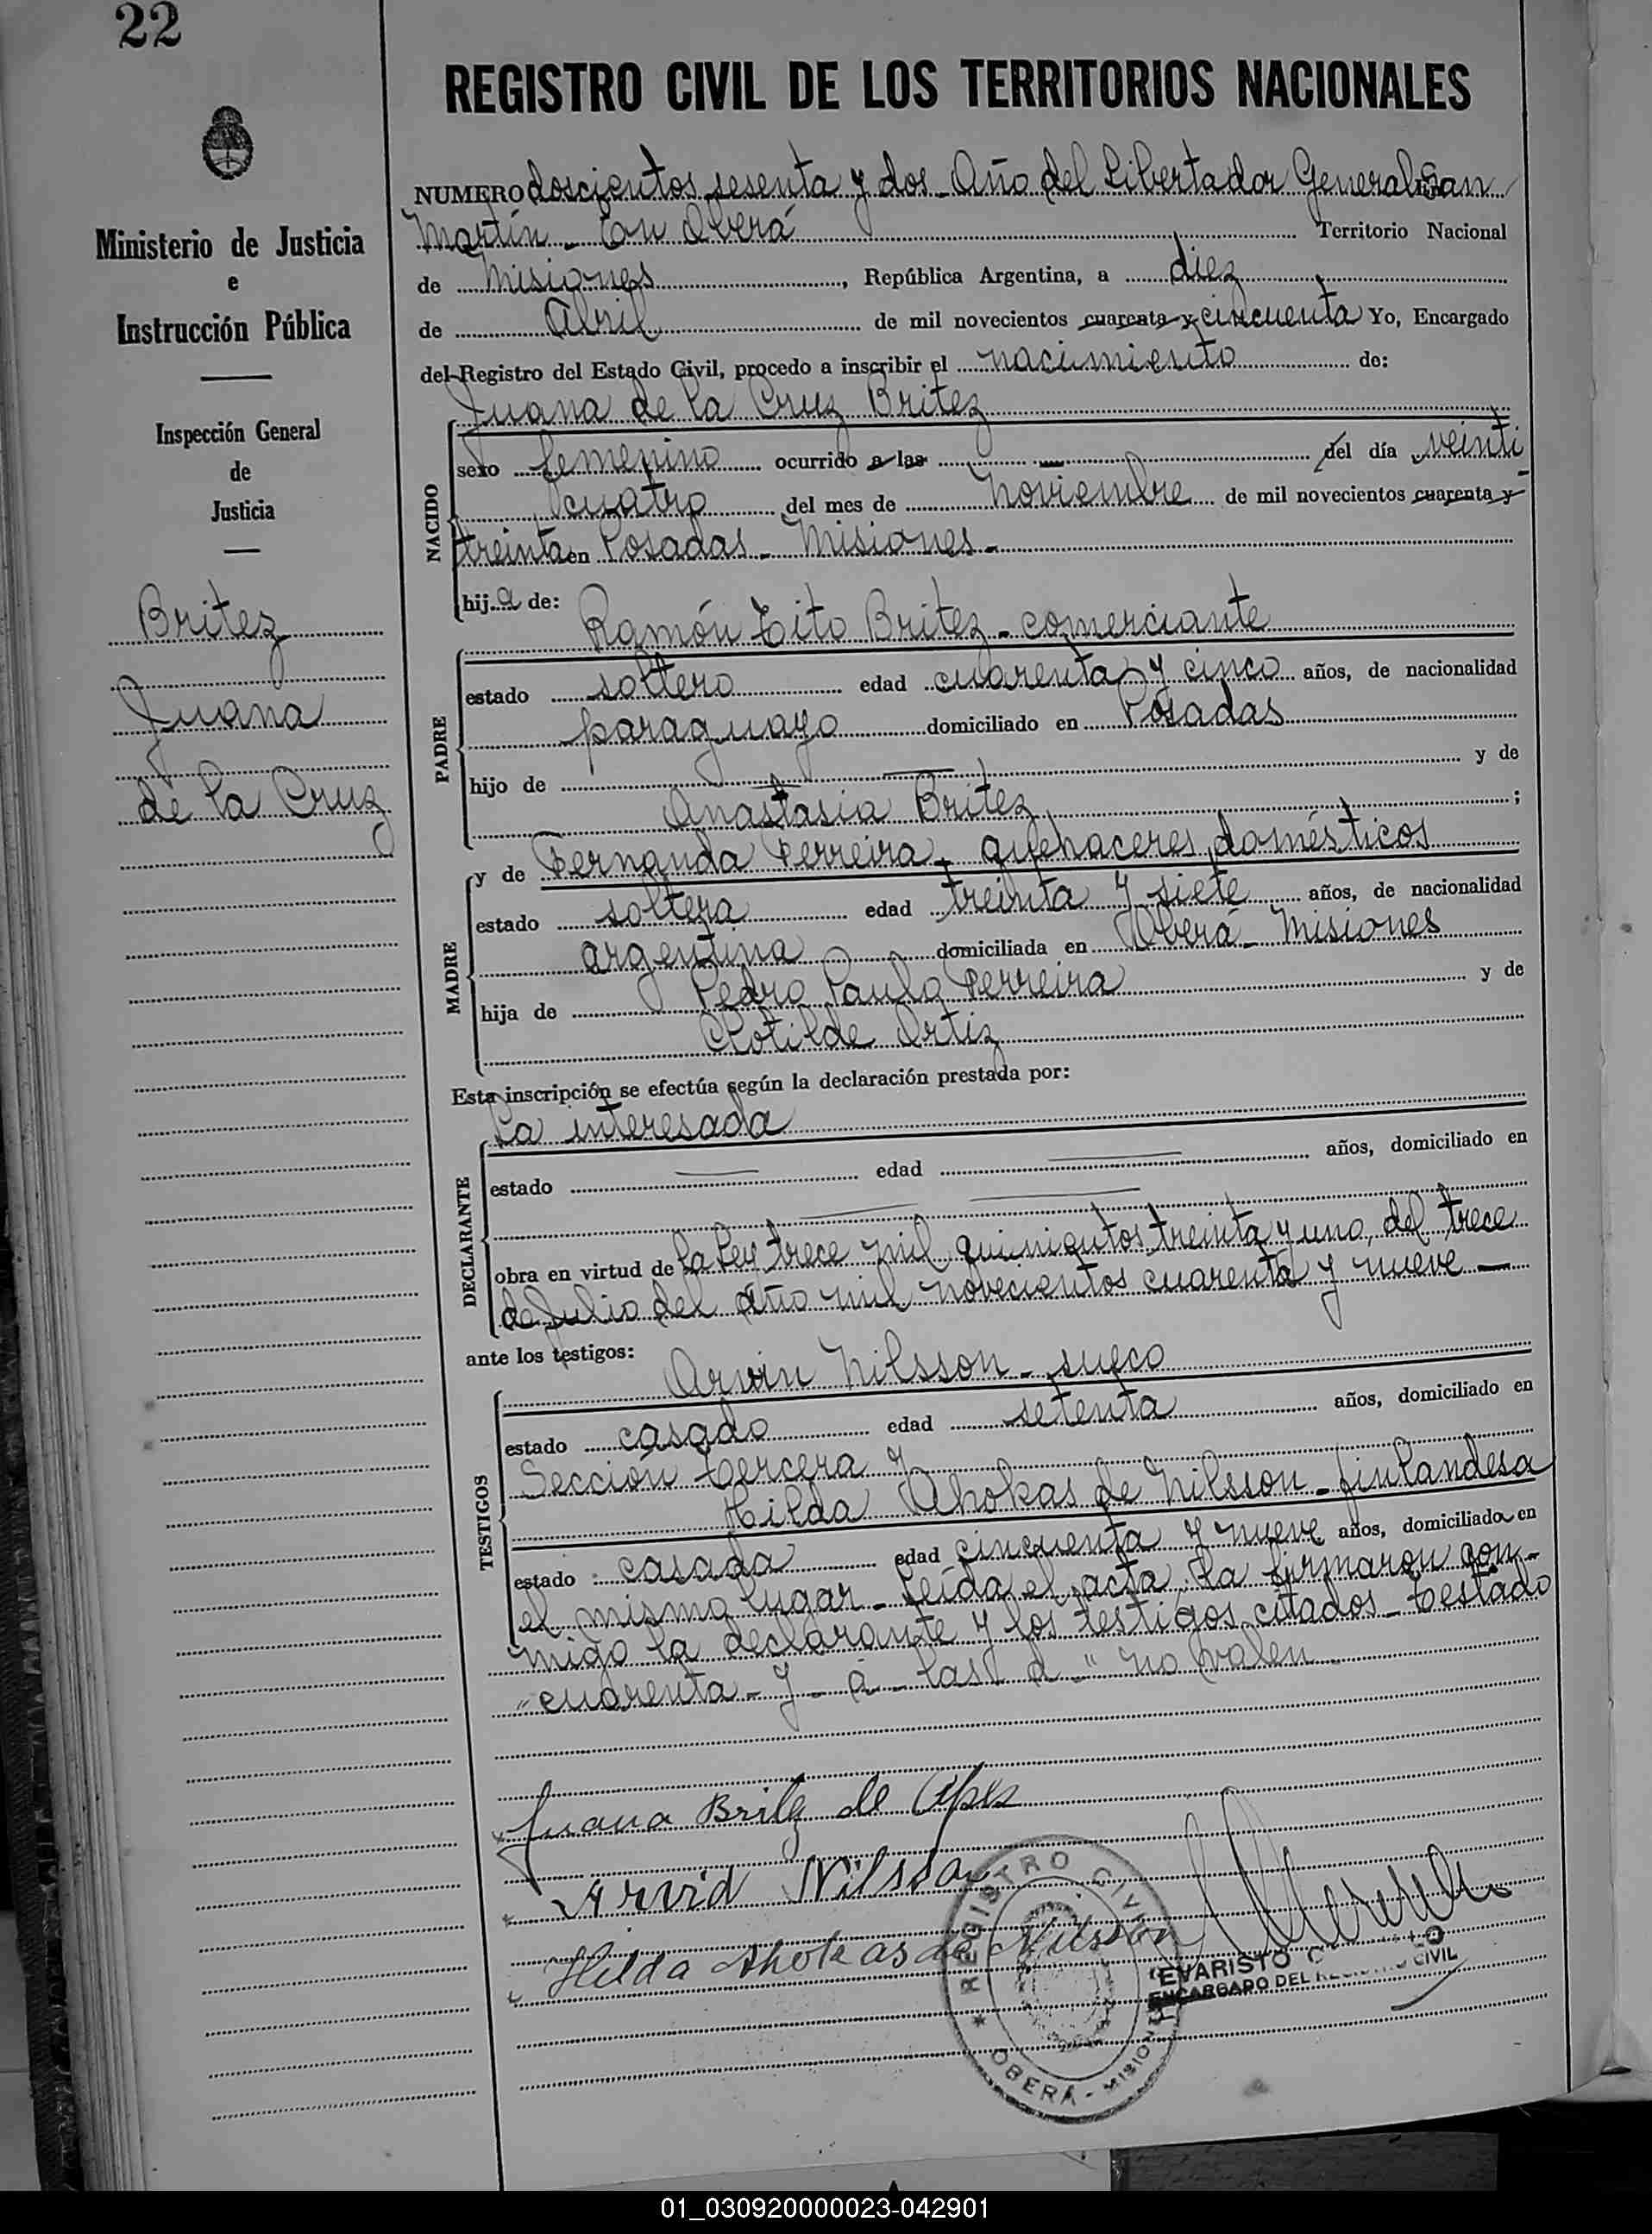 22
REGISTRO CIVIL DE LOS TERRITORIOS NACIONALES
Ministerio de Justicia
e
Instrucción Pública
Inspección General
de
Justicia
Britez
Juana
de la Cruz
NUMERO doscientos sesenta y dos - Año del Libertador General San
Martín - En Oberá Territorio Nacional
de Misiones, República Argentina, a diez
de Abril de mil novecientos cuarenta y cincuenta Yo, Encargado
del Registro del Estado Civil, procedo a inscribir el nacimiento de:
Juana de la Cruz Britez
NACIDO
sexo femenino ocurrido a las del día veinti
cuatro del mes de noviembre de mil novecientos cuarenta y
treinta en Posadas - Misiones -
hija de:
Ramón Tito Britez - comerciante
PADRE
estado soltero edad cuarenta y cinco años, de nacionalidad
paraguayo domiciliado en Posadas
hijo de y de
Anastasia Britez ;
y de Fernanda Ferreira - quehaceres domésticos
MADRE
estado soltera edad treinta y siete años, de nacionalidad
argentina domiciliada en Oberá - Misiones
hija de Pedro Paulo Ferreira y de
Clotilde Ortiz
Esta inscripción se efectúa según la declaración prestada por:
La interesada
DECLARANTE
estado edad años, domiciliado en
obra en virtud de la Ley trece mil quinientos treinta y uno, del trece
de Julio del año mil novecientos cuarenta y nueve -
ante los testigos:
Arvin Nilsson - sueco
TESTIGOS
estado casado edad setenta años, domiciliado en
Sección tercera y
Hilda Ahokas de Nilsson - finlandesa
estado casada edad cincuenta y nueve años, domiciliado en
el mismo lugar - Leída el acta, la firmaron con-
migo la declarante y los testigos citados - Testado
"cuarenta - y - a - las d" no valen
Juana Britez de
Arvid Nilsson
Hilda Ahokas de Nilsson
REGISTRO CIVIL
OBERÁ - MISIONES
EVARISTO
ENCARGADO DEL REGISTRO CIVIL
01_030920000023-042901